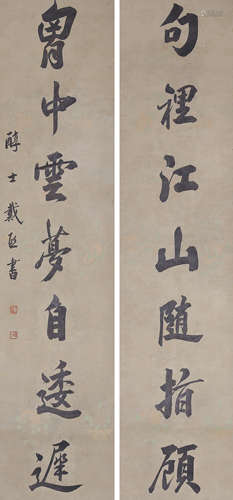 句裡江山隨指顧
胷中雲夢自逶遲
醇士戴熙書